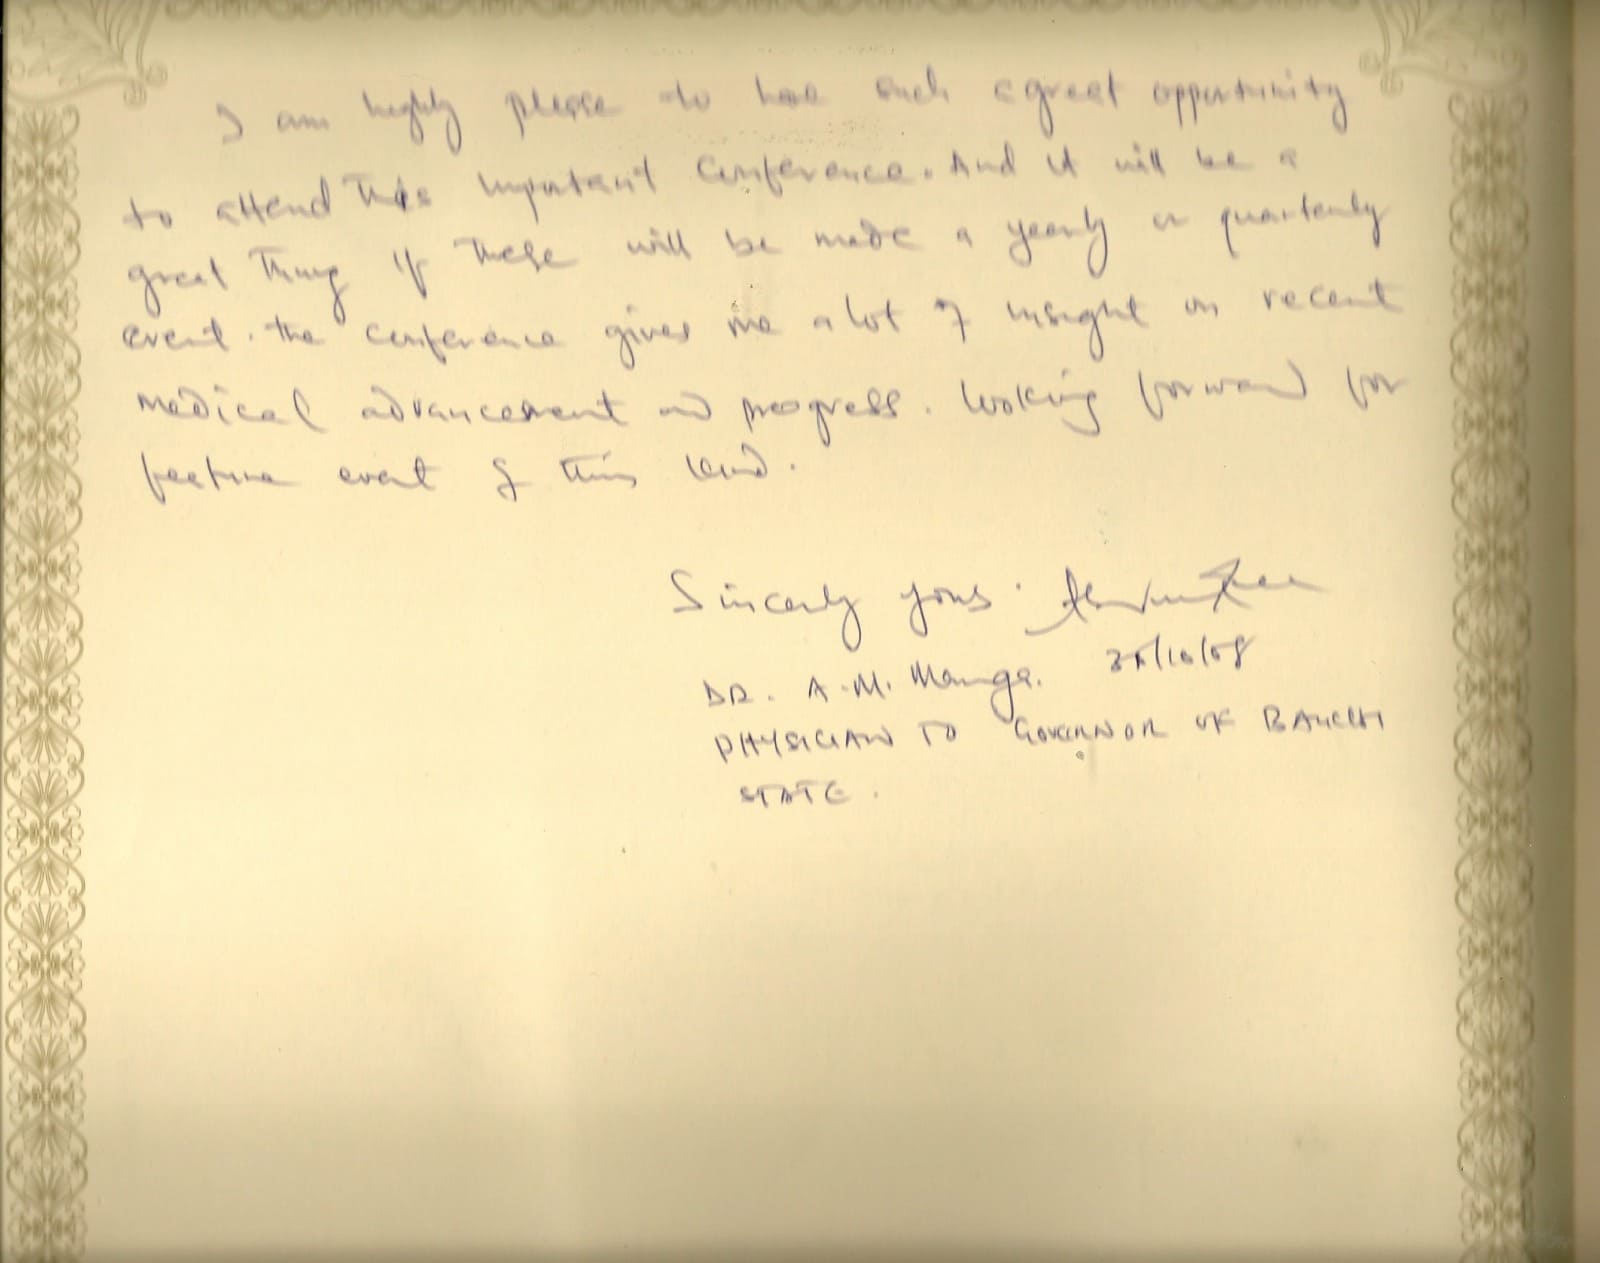 I am highly please to have such a great opportunity
to attend this important conference. And it will be a
great thing if these will be made a yearly or quarterly
event. The conference gives me a lot of insight on recent
medical advancement and progress. Looking forward for
feature event of this kind.
Sincerly yours.
DR. A.M. Manga. /10/08
PHYSICIAN TO GOVERNOR OF BAUCHI
STATE.